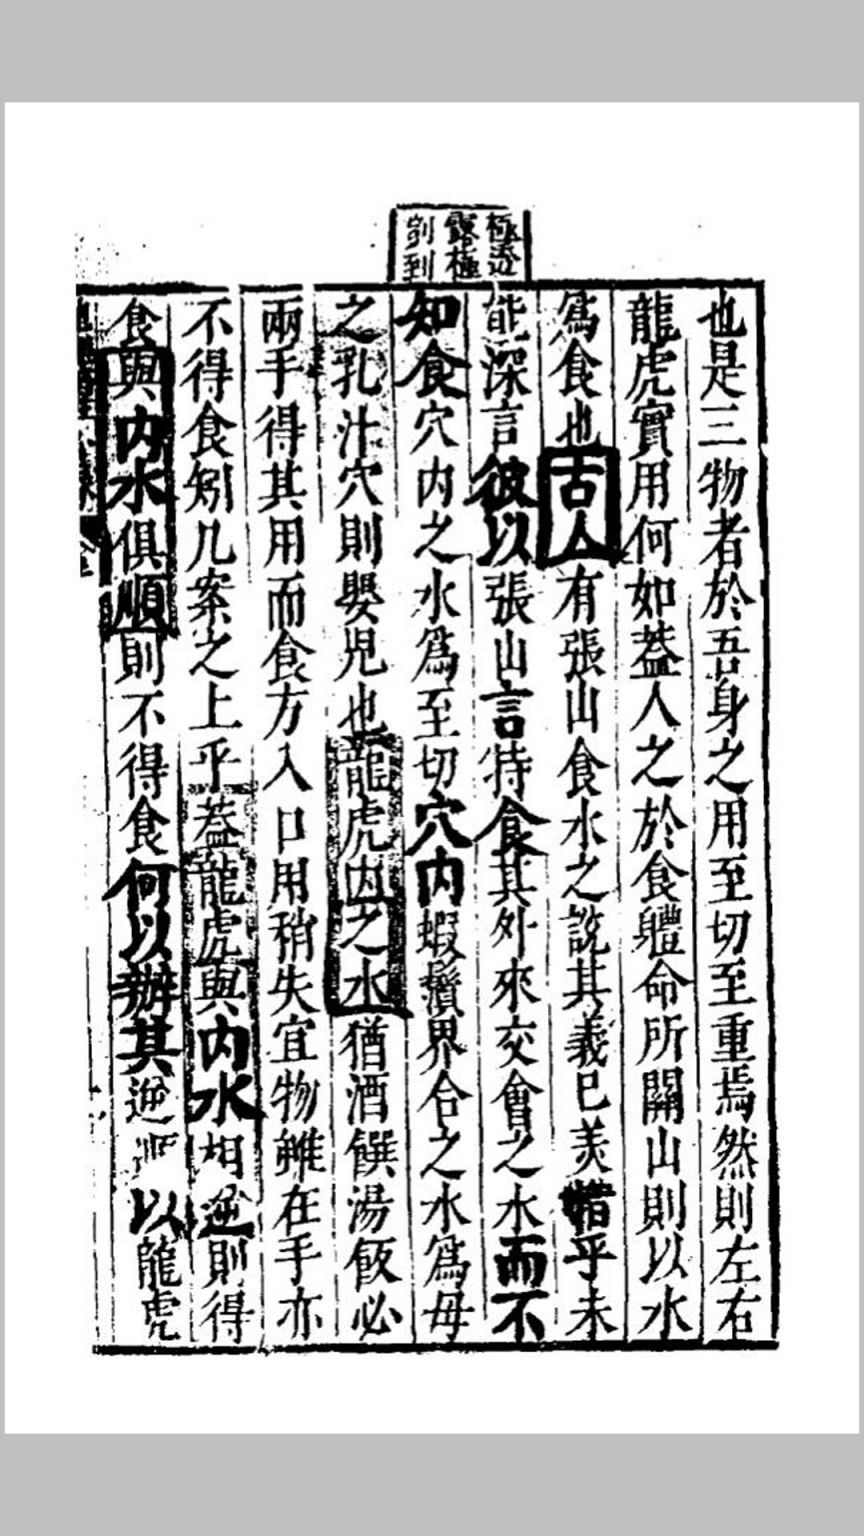 極透
露極
剴到
也是三物者於吾身之用至切至重焉然則左右
龍虎實用何如蓋人之於食軆命所關山則以水
爲食也古人有張山食水之說其義已美惜乎未
能深言彼以張山言特食其外來交會之水而不
知食穴内之水爲至切穴内蝦鬚界合之水爲母
之乳汁穴則嬰児也龍虎内之水猶酒饌湯飯必
兩手得其用而食方入口用稍失宜物雖在手亦
不得食矧几案之上乎蓋龍虎與内水相逆則得
食與内水俱順則不得食何以辦其逆順以龍虎